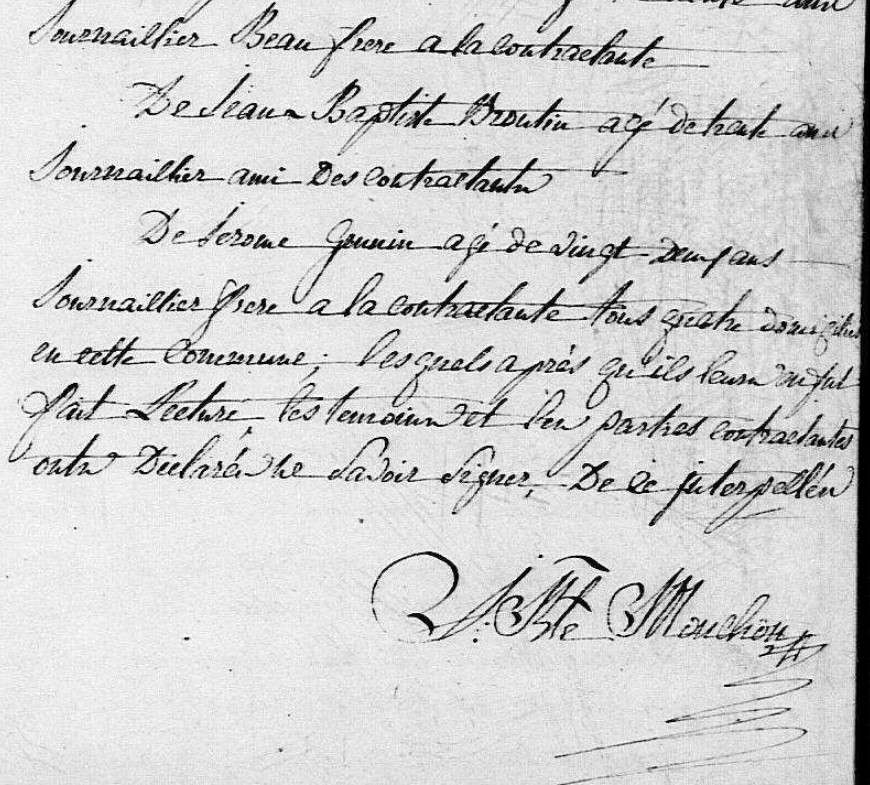 ans
Journaillier Beau frere a la contractante
De Jean Baptiste Broutin agé de trente ans
Journaillier ami Des contractants
De Jerome Gounin agé de vingt Deux ans
Journaillier frere a la contractante tous quatre domiciliés
en cette Commune; lesquels après qu'ils leurs en fut
fait Lecture, les temoins et les parties contractantes
onts Déclarés ne Savoir Signer, De ce interpellés
J. Bte Mouchon